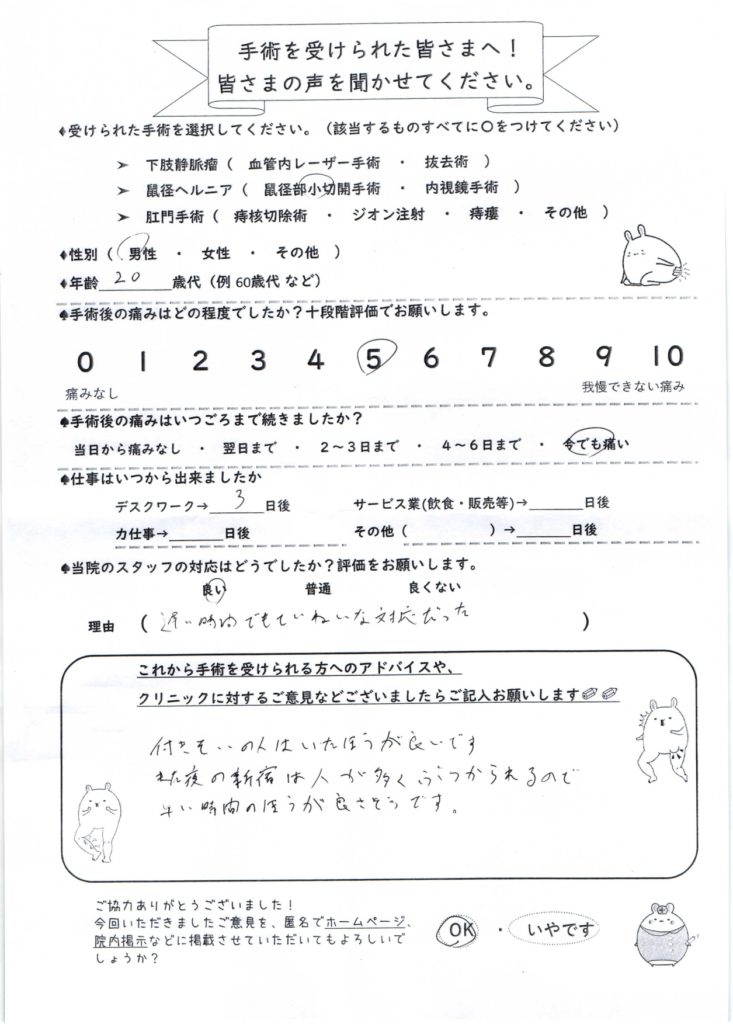 手術を受けられた皆さまへ！
皆さまの声を聞かせてください。
♦受けられた手術を選択してください。（該当するものすべてに〇をつけてください）
➤ 下肢静脈瘤（ 血管内レーザー手術 ・ 抜去術 ）
➤ 鼠径ヘルニア（ 鼠径部小切開手術 ・ 内視鏡手術 ）
➤ 肛門手術（ 痔核切除術 ・ ジオン注射 ・ 痔瘻 ・ その他 ）
♦性別（ 男性 ・ 女性 ・ その他 ）
♦年齢 20 歳代（例 60歳代 など）
♠手術後の痛みはどの程度でしたか？十段階評価でお願いします。
0 1 2 3 4 5 6 7 8 9 10
痛みなし 我慢できない痛み
♠手術後の痛みはいつごろまで続きましたか？
当日から痛みなし ・ 翌日まで ・ 2～3日まで ・ 4～6日まで ・ 今でも痛い
♠仕事はいつから出来ましたか
デスクワーク→ 3 日後 サービス業(飲食・販売等)→ 日後
力仕事→ 日後 その他（ ）→ 日後
♠当院のスタッフの対応はどうでしたか？評価をお願いします。
良い 普通 良くない
理由 （ 遅い時間でもていねいな対応だった ）
これから手術を受けられる方へのアドバイスや、
クリニックに対するご意見などございましたらご記入お願いします
付きそいの人はいたほうが良いです
また夜の新宿は人が多くぶつかられるので
早い時間のほうが良さそうです。
ご協力ありがとうございました！
今回いただきましたご意見を、匿名でホームページ、
院内掲示などに掲載させていただいてもよろしいで
しょうか？
OK ・ いやです